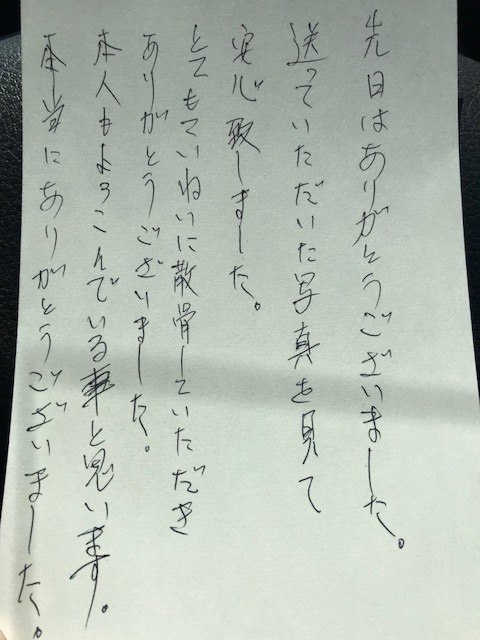 先日はありがとうございました。
送っていただいた写真を見て
安心致しました。
とてもていねいに散骨していただき
ありがとうございました。
本人もよろこんでいる事と思います。
本当にありがとうございました。